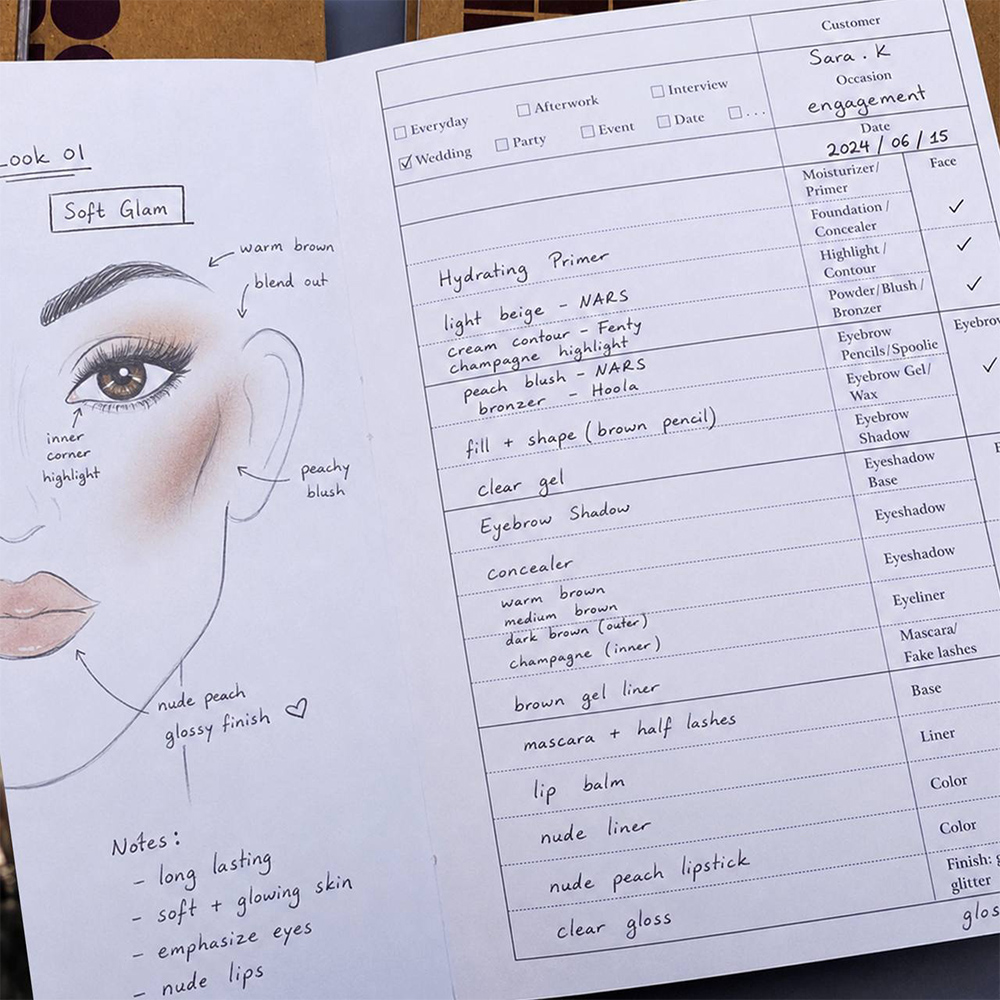 Look 01
Soft Glam
warm brown
blend out
inner
corner
highlight
peachy
blush
nude peach
glossy finish ♡
Notes:
- long lasting
- soft + glowing skin
- emphasize eyes
- nude lips
Customer
Sara . K
Occasion
engagement
Date
2024 / 06 / 15
☐ Everyday ☐ Afterwork ☐ Interview
☑ Wedding ☐ Party ☐ Event ☐ Date ☐ ...
Face
Moisturizer/
Primer
Hydrating Primer
Foundation/
Concealer ✓
light beige - NARS
Highlight/
Contour ✓
cream contour - Fenty
champagne highlight
Powder/Blush/
Bronzer ✓
peach blush - NARS
bronzer - Hoola
Eyebrow
Pencils/Spoolie
fill + shape (brown pencil)
Eyebrow Gel/
Wax ✓
clear gel
Eyebrow
Shadow
Eyebrow Shadow
Eyeshadow
Base
concealer
Eyeshadow
warm brown
medium brown
Eyeshadow
dark brown (outer)
champagne (inner)
Eyeliner
brown gel liner
Mascara/
Fake lashes
mascara + half lashes
Base
lip balm
Liner
nude liner
Color
nude peach lipstick
Color
clear gloss
Finish:
glitter